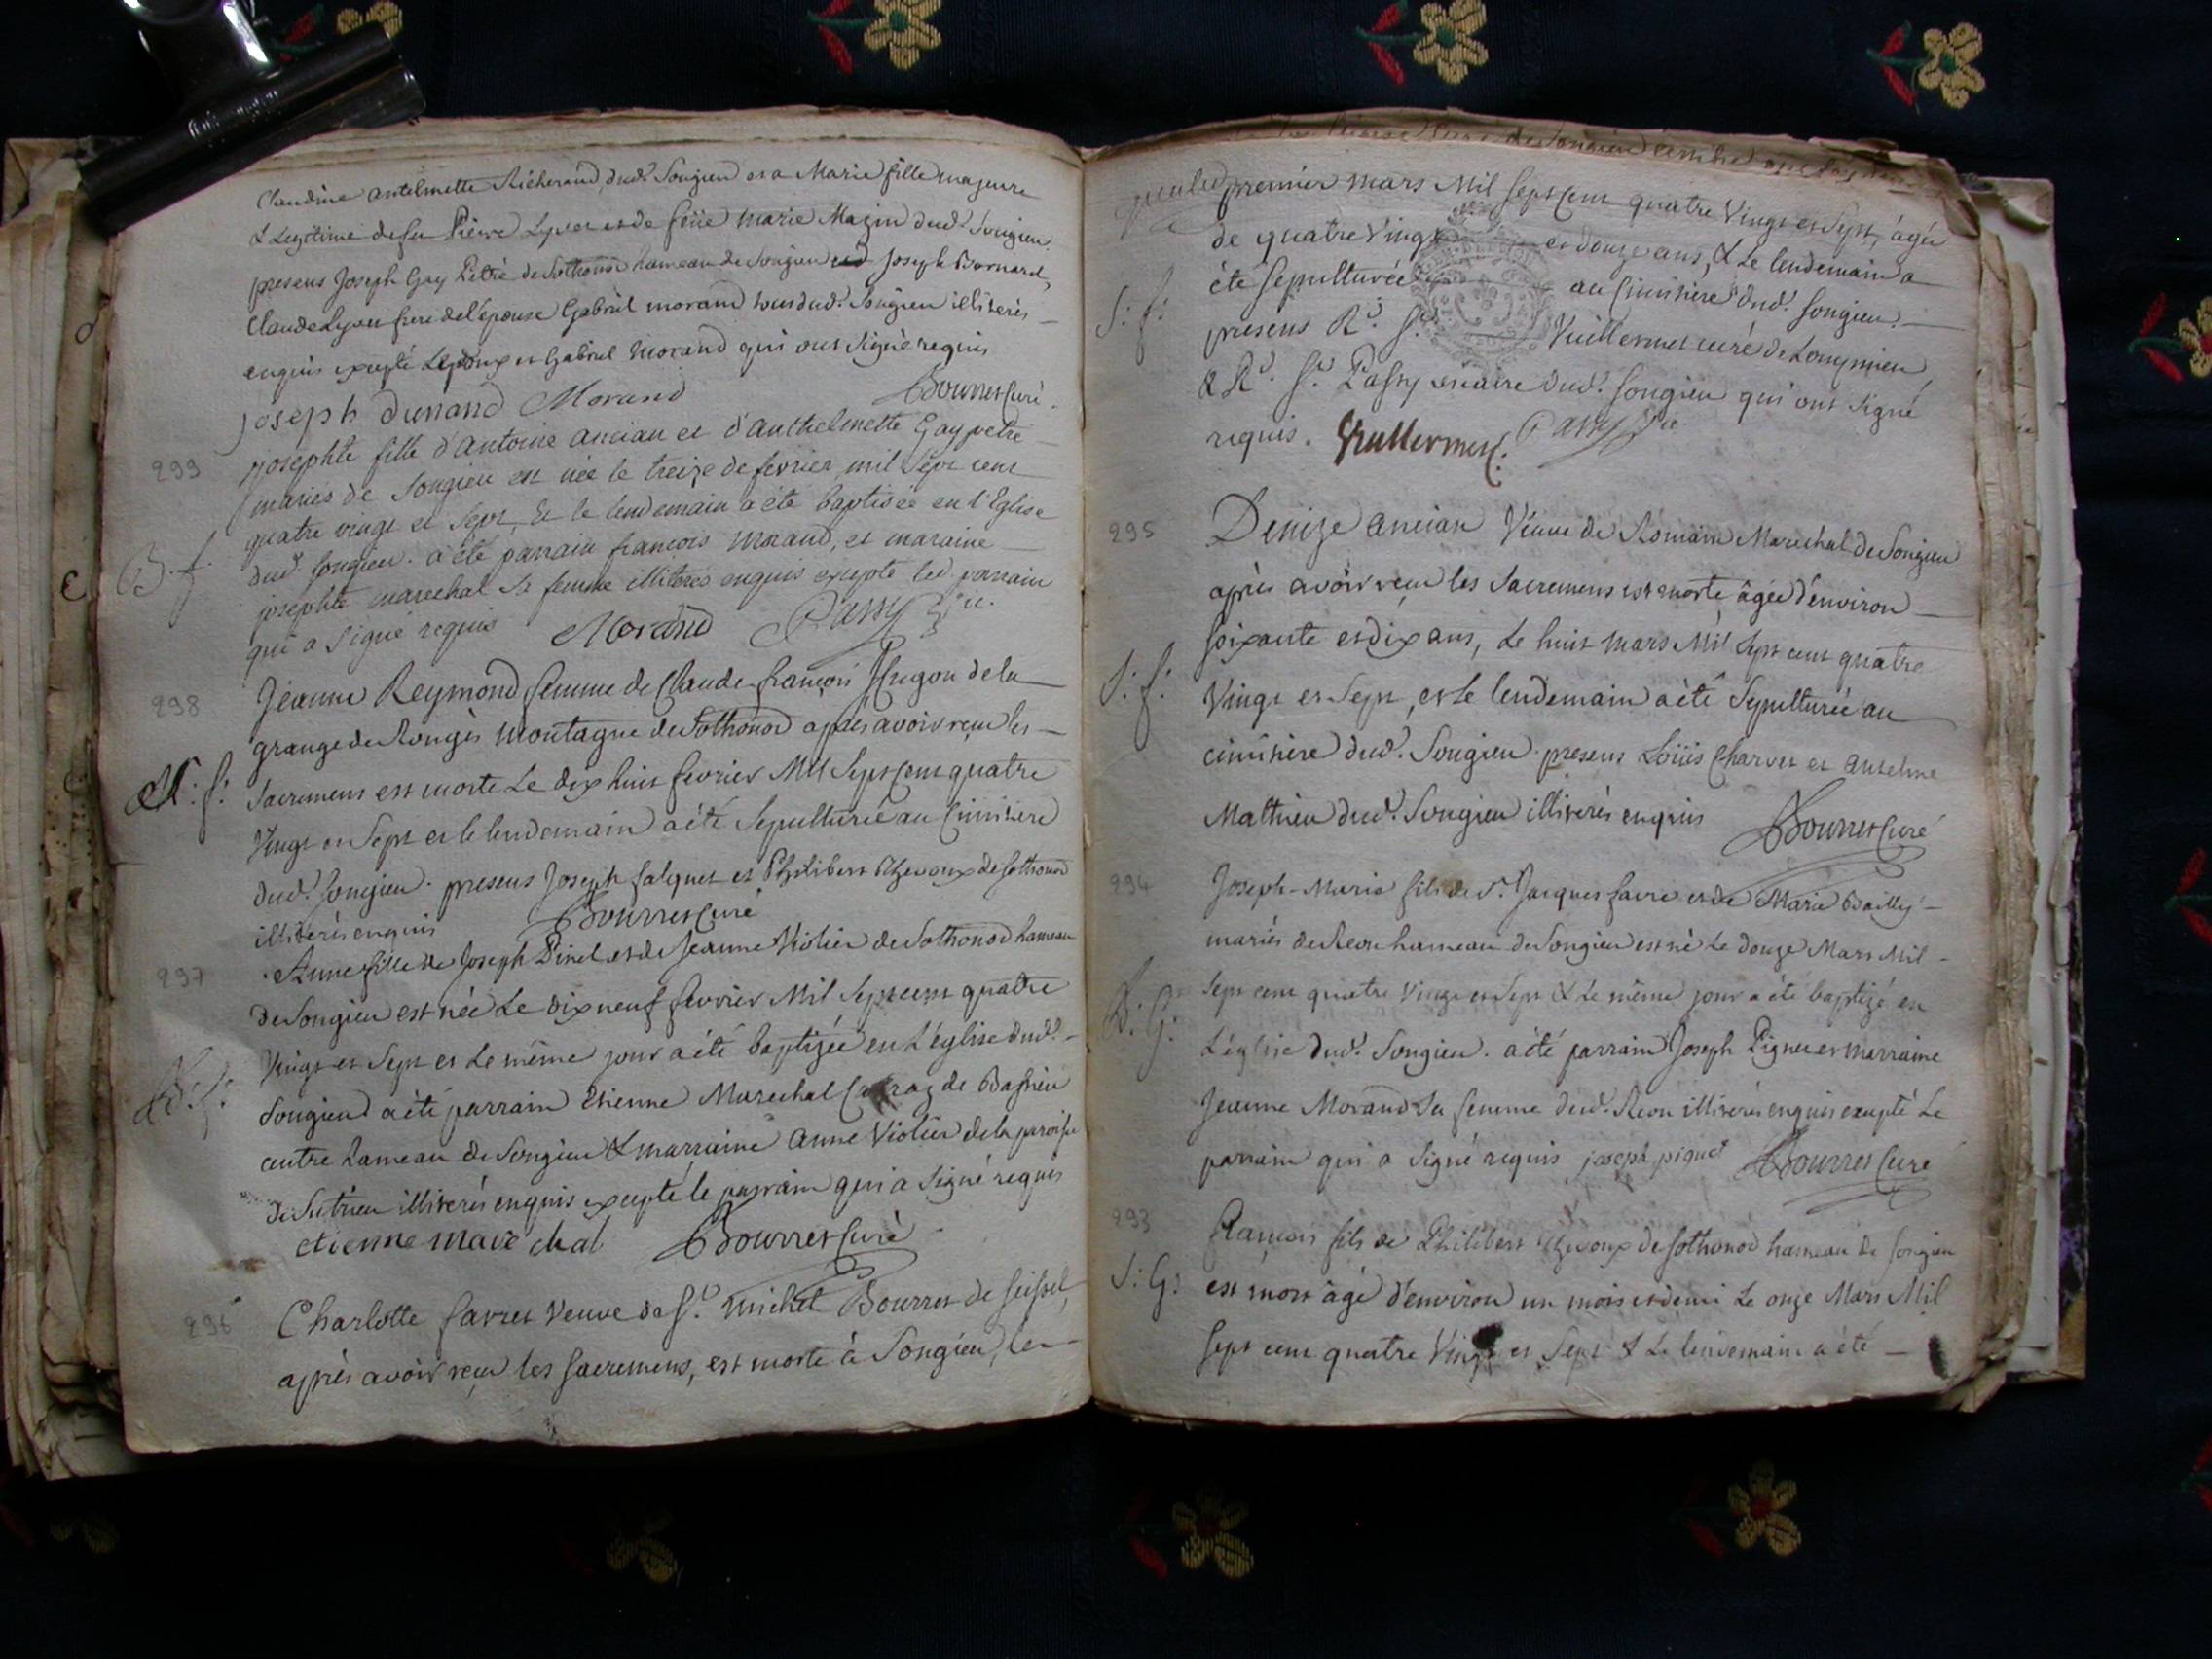 Claudine antelmette Richerand, dud.t Songieu et a Marie fille majeure
& Legitime de feu Pierre Lyvet et de feüe Marie Mazin dud.t Songieu,
presens Joseph Gay Petré de Sothonod hameau de Songieu Joseph Bornard,
Claude Lyvet frere de l'épouse Gabriel morand tous dud.t Songieu illiterés
enquis excepté Lepoux et Gabriel Morand qui ont Signé requis
joseph Dunand Morand Bourret Curé.
299
josephte fille d'antoine ancian et d'anthelmette Gay petré
mariés de Songieu est née le treize de fevrier mil sept cent
quatre vingt et sept, & le lendemain a été baptisée en l'Eglise
B. f.
dud.t Songieu. a été parrain françois Morand, et maraine
josephte marechal sa femme illiteres enquis excepte led. parrain
qui a Signé requis Morand Passy vic.
298
Jeanne Reymond femme de Claude françois Hugon de la
grange de Rougès montagne de Sothonod après avoir reçu les
M: f:
Sacremens est morte Le dix huit fevrier Mil Sept Cent quatre
Vingt et Sept et le lendemain a été Sepulturée au Cimitere
dud.t Songieu. presens Joseph falquet et Philibert de Sothonod
illiterés enquis Bourret Curé
297
Anne fille de Joseph Pinel et de Jeanne Violier de Sothonod hameau
de Songieu est née Le dix neuf fevrier Mil Sept cent quatre
Vingt et Sept et Le même jour a été baptizée en L'église dud.t
B. f:
Songieu a été parrain Etienne Marechal de Bassieu
autre hameau de Songieu & marraine Anne Violier de la paroisse
de Sutrieu illiterés enquis excepté le parrain qui a Signé requis
etienne mare chal Bourret Curé
296
Charlotte favret Veuve de S.r Michel Bourret de Seissel,
après avoir reçu les Sacremens, est morte à Songieu, le
premier Mars Mil Sept Cent quatre Vingt et Sept, agée
de quatre Vingt et douze ans, & Le lendemain a
S: f:
été Sepulturée au Cimitière dud.t Songieu.
presens R.d S.r Vuillermet curé de Lompnieu
& R.d S.r Passy vicaire dud.t Songieu qui ont Signé
requis. Vuillermet. Passy vic.
295
Denize ancian Veuve de Romain Marechal de Songieu
après avoir reçu les Sacremens est morte âgée d'environ
Soixante et dix ans, Le huit Mars Mil Sept cent quatre
S: f:
Vingt et Sept, et le lendemain a été Sepulturée au
cimitière dud.t Songieu. presens Loüis Charvet et anselme
Mathieu dud.t Songieu illiterés enquis Bourret Curé
294
Joseph-Marie fils de S.r Jacques favre et de Marie Bailly
mariés de Reon hameau de Songieu est né Le douze Mars Mil
Sept cent quatre Vingt et Sept & Le même jour a été baptizé en
B: G:
L'église dud.t Songieu. a été parrain Joseph Piguet et marraine
Jeanne Morand Sa femme dud.t Reon illiterés enquis excepté Le
parrain qui a Signé requis joseph piquet Bourret Curé
293
François fils de Philibert de Sothonod hameau de Songieu
S: G:
est mort âgé d'environ un mois et demi Le onze Mars Mil
Sept cent quatre Vingt et Sept & Le lendemain a été